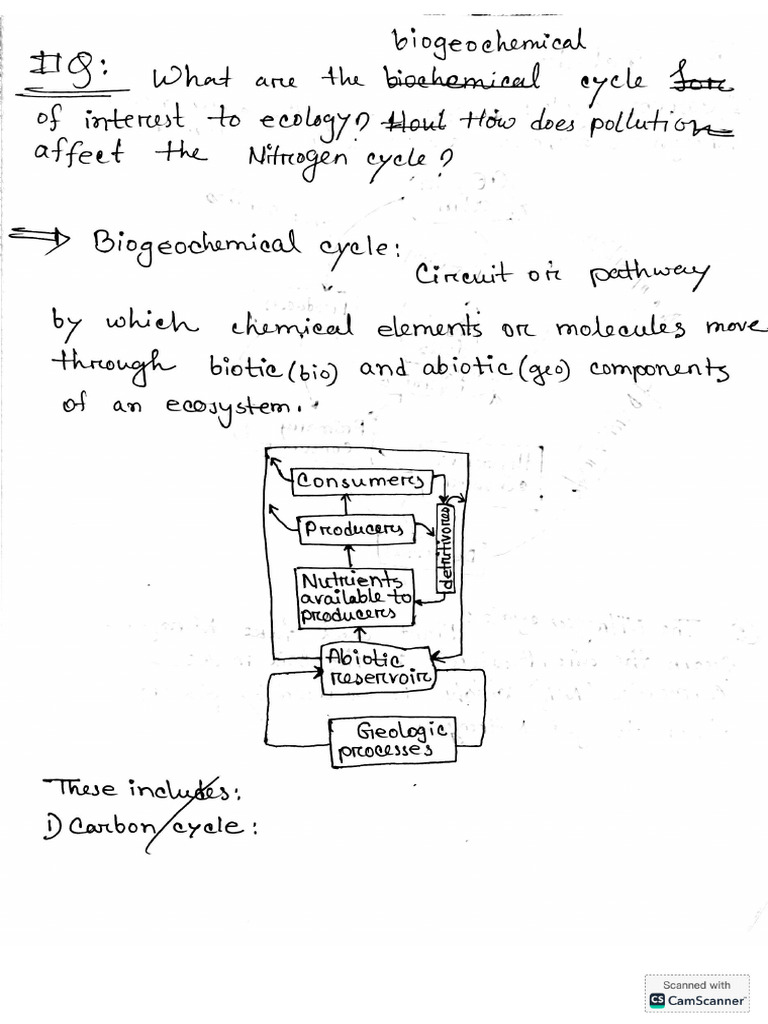 biogeochemical
#Q: What are the biochemical cycle for
of interest to ecology? Houl How does pollution
affect the Nitrogen cycle?
⇒ Biogeochemical cycle:
Circuit or pathway
by which chemical elements or molecules move
through biotic (bio) and abiotic (geo) components
of an ecosystem.
Consumers
Producers
detritivores
Nutrients
available to
producers
Abiotic
reservoir
Geologic
processes
These includes:
1) Carbon cycle:
Scanned with
CS CamScanner